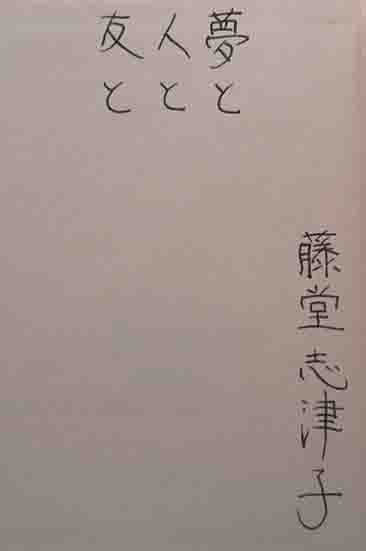 夢と
人と
友と
藤堂志津子